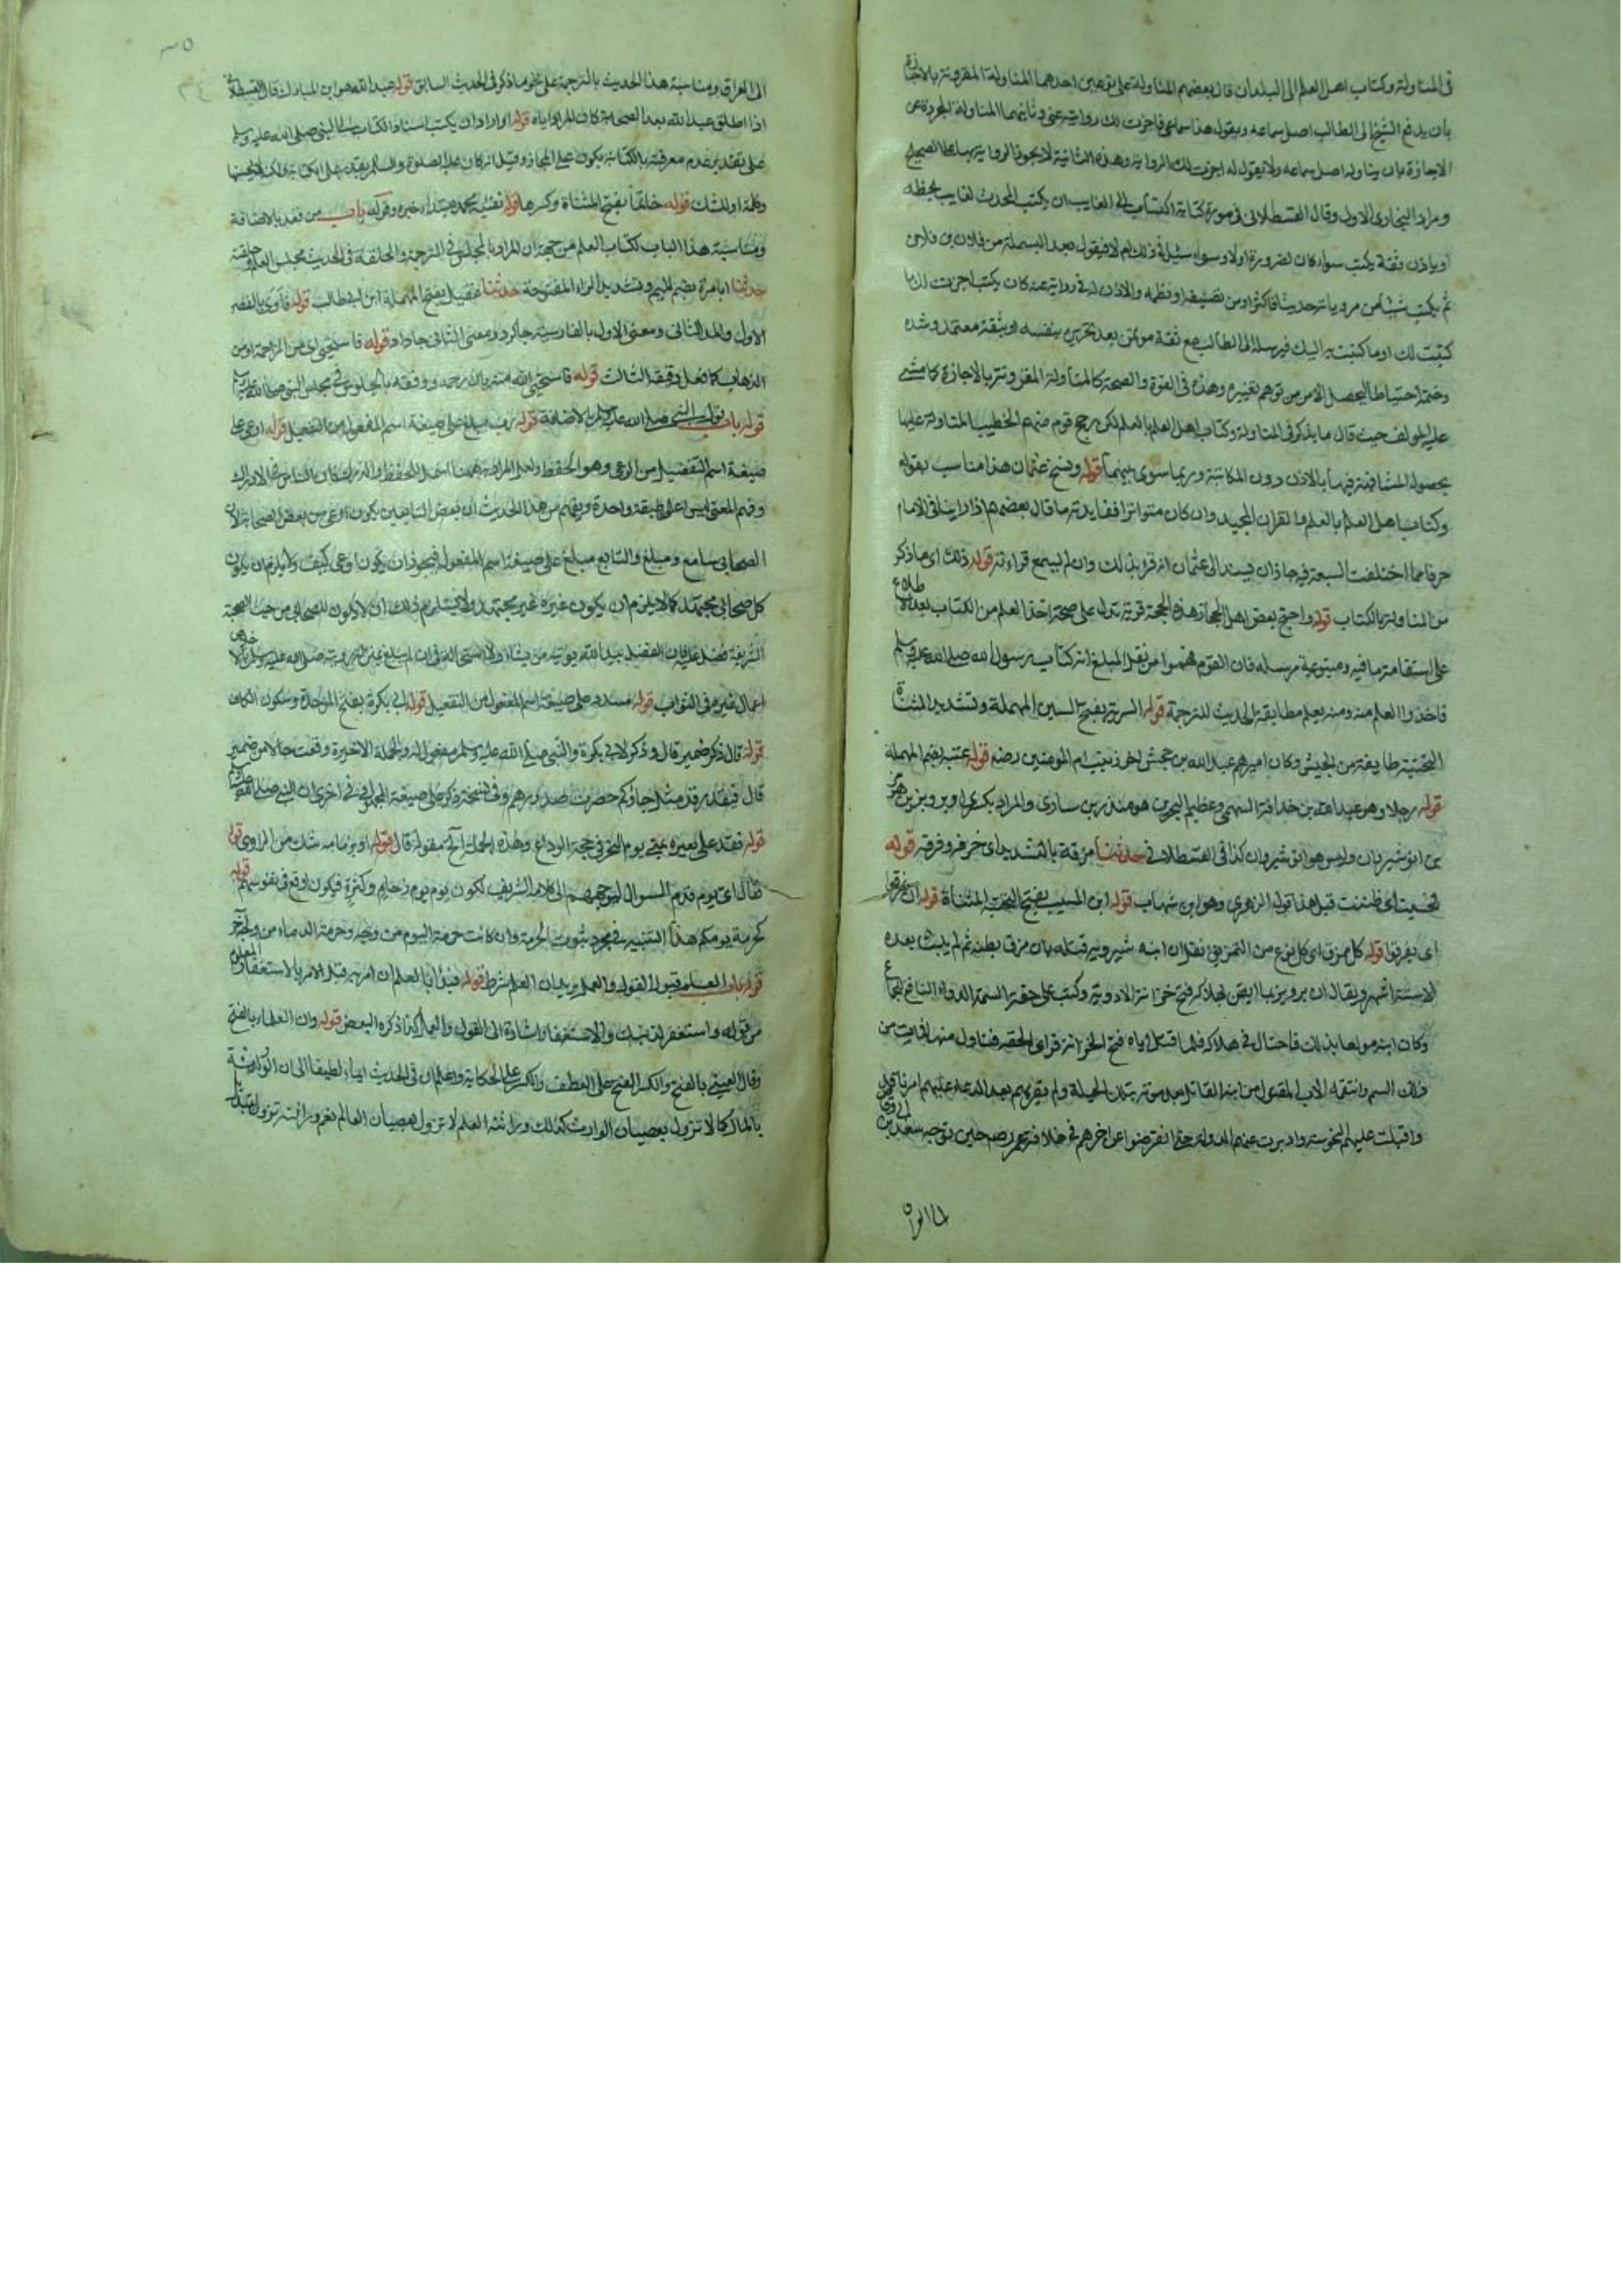 في المناولة وكتاب اهل العلم الى البلدان قال بعضهم المناولة على نوعين احدهما المناولة المقرونة بالاجازة
بان يدفع الشيخ الى الطالب اصل سماعه ويقول هذا سماعي فاجزت لك روايته عني وثانيهما المناولة المجردة عن
الاجازة بان يناوله اصل سماعه ولا يقول له اجزت لك الرواية وهذه الثانية لا يجوز الرواية بها على الصحيح
ومراد البخاري الاول وقال القسطلاني في صورة كتابة الكتاب الى الغايب ان يكتب المحدث لغايب بخطه
او ياذن ثقة يكتب سواء كان لضرورة اولا وسواء سئل في ذلك ام لا فيقول بعد البسملة من فلان بن فلان
ثم يكتب شيئا من مروياته حديثا فاكثر او من تصنيفه او نظمه والاذن له في روايته عنه كان يكتب اجزت لك ما
كتبت لك او ما كتبت به اليك فيرسله الى الطالب مع ثقة مؤتمن بعد تحريره بنفسه او بثقة معتمد وشده
وختمه احتياطا ليحصل الامن من توهم تغييره وهذه في القوة والصحة كالمناولة المقرونة بالاجازة كما مشى
عليه المولف حيث قال ما يذكر في المناولة وكتاب اهل العلم بالعلم لكن رجح قوم منهم الخطيب المناولة عليها
بحصول المشافهة فيها بالاذن دون المكاتبة وربما سوى بينهما قوله ونسخ عثمان هذا مناسب بقوله
وكتاب اهل العلم بالعلم فالقران المجيد وان كان متواترا فقايدته ما قال بعضهم اذا راينا في الامام
حرفا مما اختلفت السبعة فيه جاز ان يسند الى عثمان انه قرا بذلك وان لم يسمع قراءته قوله ذلك اى ما ذكر
من المناولة بالكتاب قوله واحتج بعض اهل الحجاز هذه الحجة قوية تدل على صحة اخذ العلم من الكتاب بعد الاطلاع
على استقامة ما فيه ومتبوعية مرسله فان القوم فهموا من نقل المبلغ انه كتاب رسول الله صلى الله عليه وسلم
فاخذوا العلم منه ومنه يعلم مطابقة الحديث للترجمة قوله السرية بفتح السين المهملة وتشديد المثناة
التحتية طايفة من الجيش وكان اميرهم عبد الله بن جحش اخو زينب ام المومنين رضه قوله عتبة بضم المهملة
قوله رجلا وهو عبد الله بن حذافة السهمي وعظيم البحرين هو منذر بن ساوى والمراد بكسرى ابرويز بن هرمز
بن انوشيروان وليس هو انوشيروان كذا في القسطلاني حدثنا مزقه بالتشديد اى خرقه وفرقه قوله
فحسبت اى ظننت قبل هذا قوله الزهري وهو ابن شهاب قوله ابن المسيب بفتح التحتية المثناة قوله ان يمزقوا
اى يفرقوا قوله كل ممزق اى كل نوع من التمزيق نقل ان ابنه شيرويه قتله بان مزق بطنه ثم لم يلبث بعده
الا ستة اشهر ويقال ان برويز لما ايقن بهلاكه فتح خزانة الادوية وكتب على حقة السم الدواء النافع للجماع
وكان ابنه مولعا بذلك فاحتال في هلاكه فلما قتل اباه فتح الخزانة فراى الحقة فتناول منها فمات من
ذلك السم وانتقم الاب المقتول من ابنه القاتل بعد موته بتلك الحيلة ولم يقم لهم بعد الدعاء عليهم امر نافذ
واقبلت عليهم النحوسة وادبرت عنهم الدولة حتى انقرضوا عن اخرهم في خلافة عمر رضه حين توجه سعد بن ابي وقاص
الى العراق ومناسبة هذا الحديث بالترجمة على نحو ما ذكر في الحديث السابق قوله عبد الله هو ابن المبارك قال القسطلاني
اذا اطلق عبد الله بعد الصحابة كان المراد اياه قوله او اراد ان يكتب اسناد الكتاب الى النبي صلى الله عليه وسلم
على تقدير عدم معرفته بالكتابة يكون على المجاز وقيل انه كان عليه الصلوة والسلم يقدر على الكتابة ولكن لا يحسنها
وكلمة او للشك قوله حلقا بفتح المثناة وكسرها قوله نقشه محمد مبتدا وخبره وقوله باب من قعد بالاضافة
ومناسبة هذا الباب لكتاب العلم من جهة ان المراد بالمجلس في الترجمة والحلقة في الحديث مجلس العلم وحلقته
حدثنا ابا مرة بضم الميم وتشديد الراء المفتوحة حدثنا عقيل بفتح المهملة ابن ابي طالب قوله فآوى بالقصر
الاول والمد الثاني ومعنى الاول بالفارسية جا كرد ومعنى الثاني جا داد قوله فاستحيى اى من المزاحمة او من
الذهاب كما فعل رفيقه الثالث قوله فاستحيى الله منه بان رحمه ووفقه بالجلوس في مجلس النبي صلى الله عليه وسلم
قوله باب قول النبي صلى الله عليه وسلم بالاضافة قوله رب مبلغ على صيغة اسم المفعول من التفعيل قوله اوعى على
صيغة اسم التفضيل من الوعى وهو الحفظ
وفهم المعنى ليسوا على طبقة واحدة ويفهم من هذا الحديث ان بعض التابعين يكون اوعى من بعض الصحابة لان
الصحابي سامع ومبلغ والتابع مبلغ على صيغة اسم المفعول فيجوز ان يكون اوعى كيف ولا يلزم ان يكون
كل صحابي مجتهد كما لا يلزم ان يكون غيره غير مجتهد ولا يستلزم ذلك ان لا يكون للصحابي من حيث الصحبة
الشريفة فضل عليه فان الفضل بيد الله يوتيه من يشاء
اعمال غيرهم في الثواب قوله مسدد على صيغة اسم المفعول من التفعيل قوله ابي بكرة بفتح الموحدة وسكون الكاف
قوله قال ذكر ضمير قال وذكر لابي بكرة والنبي صلى الله عليه وسلم مفعول له والجملة الاخيرة وقعت حالا من ضمير
قال فيقدر قد مثل جاؤكم حصرت صدورهم وفي نسخة ذكر على صيغة المجهول في اخرى ان النبي صلى الله عليه وسلم
قوله فقعد على بعيره بمنى يوم النحر في حجة الوداع وهذه الجملة اه مقولة قال قوله او بزمامه شك من الراوي قوله
فقال اى يوم قدم السوال ليوجههم الى كلامه الشريف لكون يوم يوم زحام وكثرة فيكون اوقع في نفوسهم قوله
كحرمة يومكم هذا التشبيه في مجرد ثبوت الحرمة وان كانت حرمة اليوم من وجه وحرمة الدماء من وجه آخر
قوله باب العلم قبل القول والعمل بيان ان العلم شرط قوله فبدأ بالعلم ان امر به قبل الامر بالاستغفار
من قوله واستغفر لذنبك والاستغفار اشارة الى القول والعمل كذا ذكره البعض قوله وان العلماء بالفتح
وقال العيني بالفتح والكسر الفتح على العطف والكسر على الحكاية واعلم ان في الحديث ايماء لطيفا الى ان الوراثة
بالمال كما لا تزول بعصيان الوارث كذلك وراثة العلم لا تزول بعصيان العالم نعم وراثته تزول